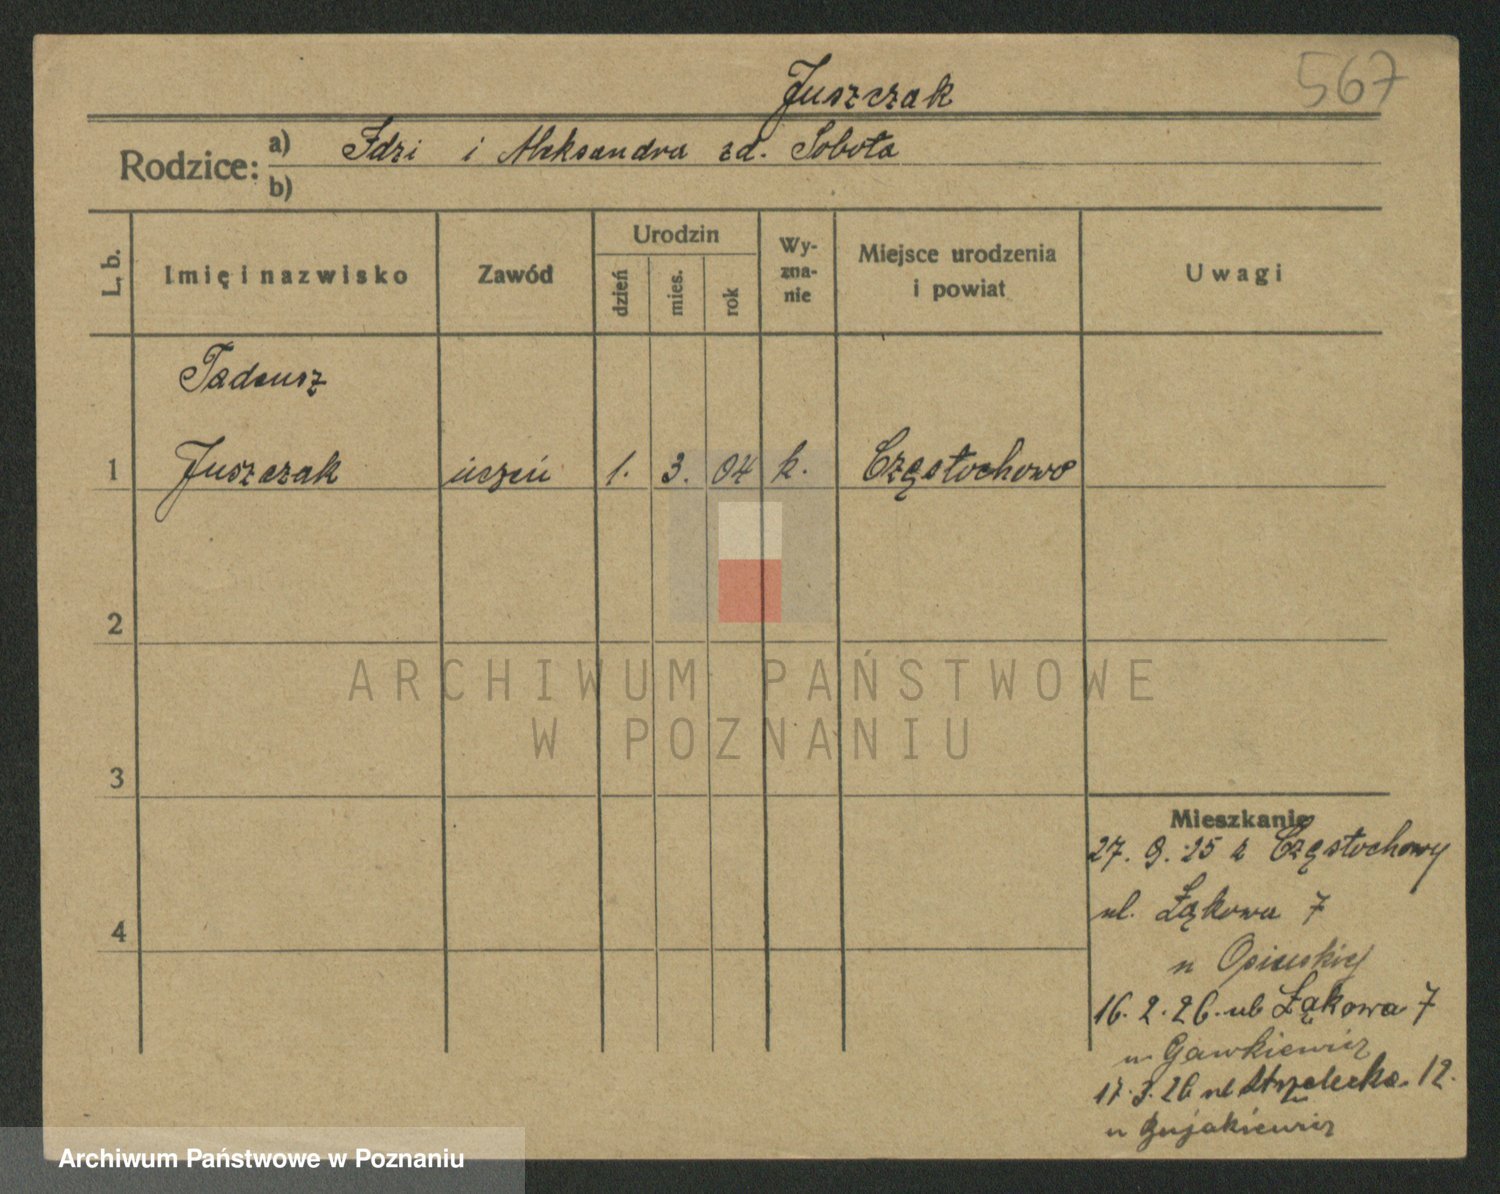 567
Juszczak
Rodzice: a) Idzi i Aleksandra zd. Sobota
b)
L. b. Imię i nazwisko Zawód Urodzin dzień mies. rok Wyznanie Miejsce urodzenia i powiat Uwagi
Tadeusz
1 Juszczak uczeń 1. 3. 04 k. Częstochowa
2
3
4
Mieszkanie
27. 9. 25 z Częstochowy
ul. Łąkowa 7
u
16. 2. 26. ul Łąkowa 7
u Gawkiewicz
17. 3. 26 ul Strzelecka 12.
u
ARCHIWUM PAŃSTWOWE
W POZNANIU
Archiwum Państwowe w Poznaniu